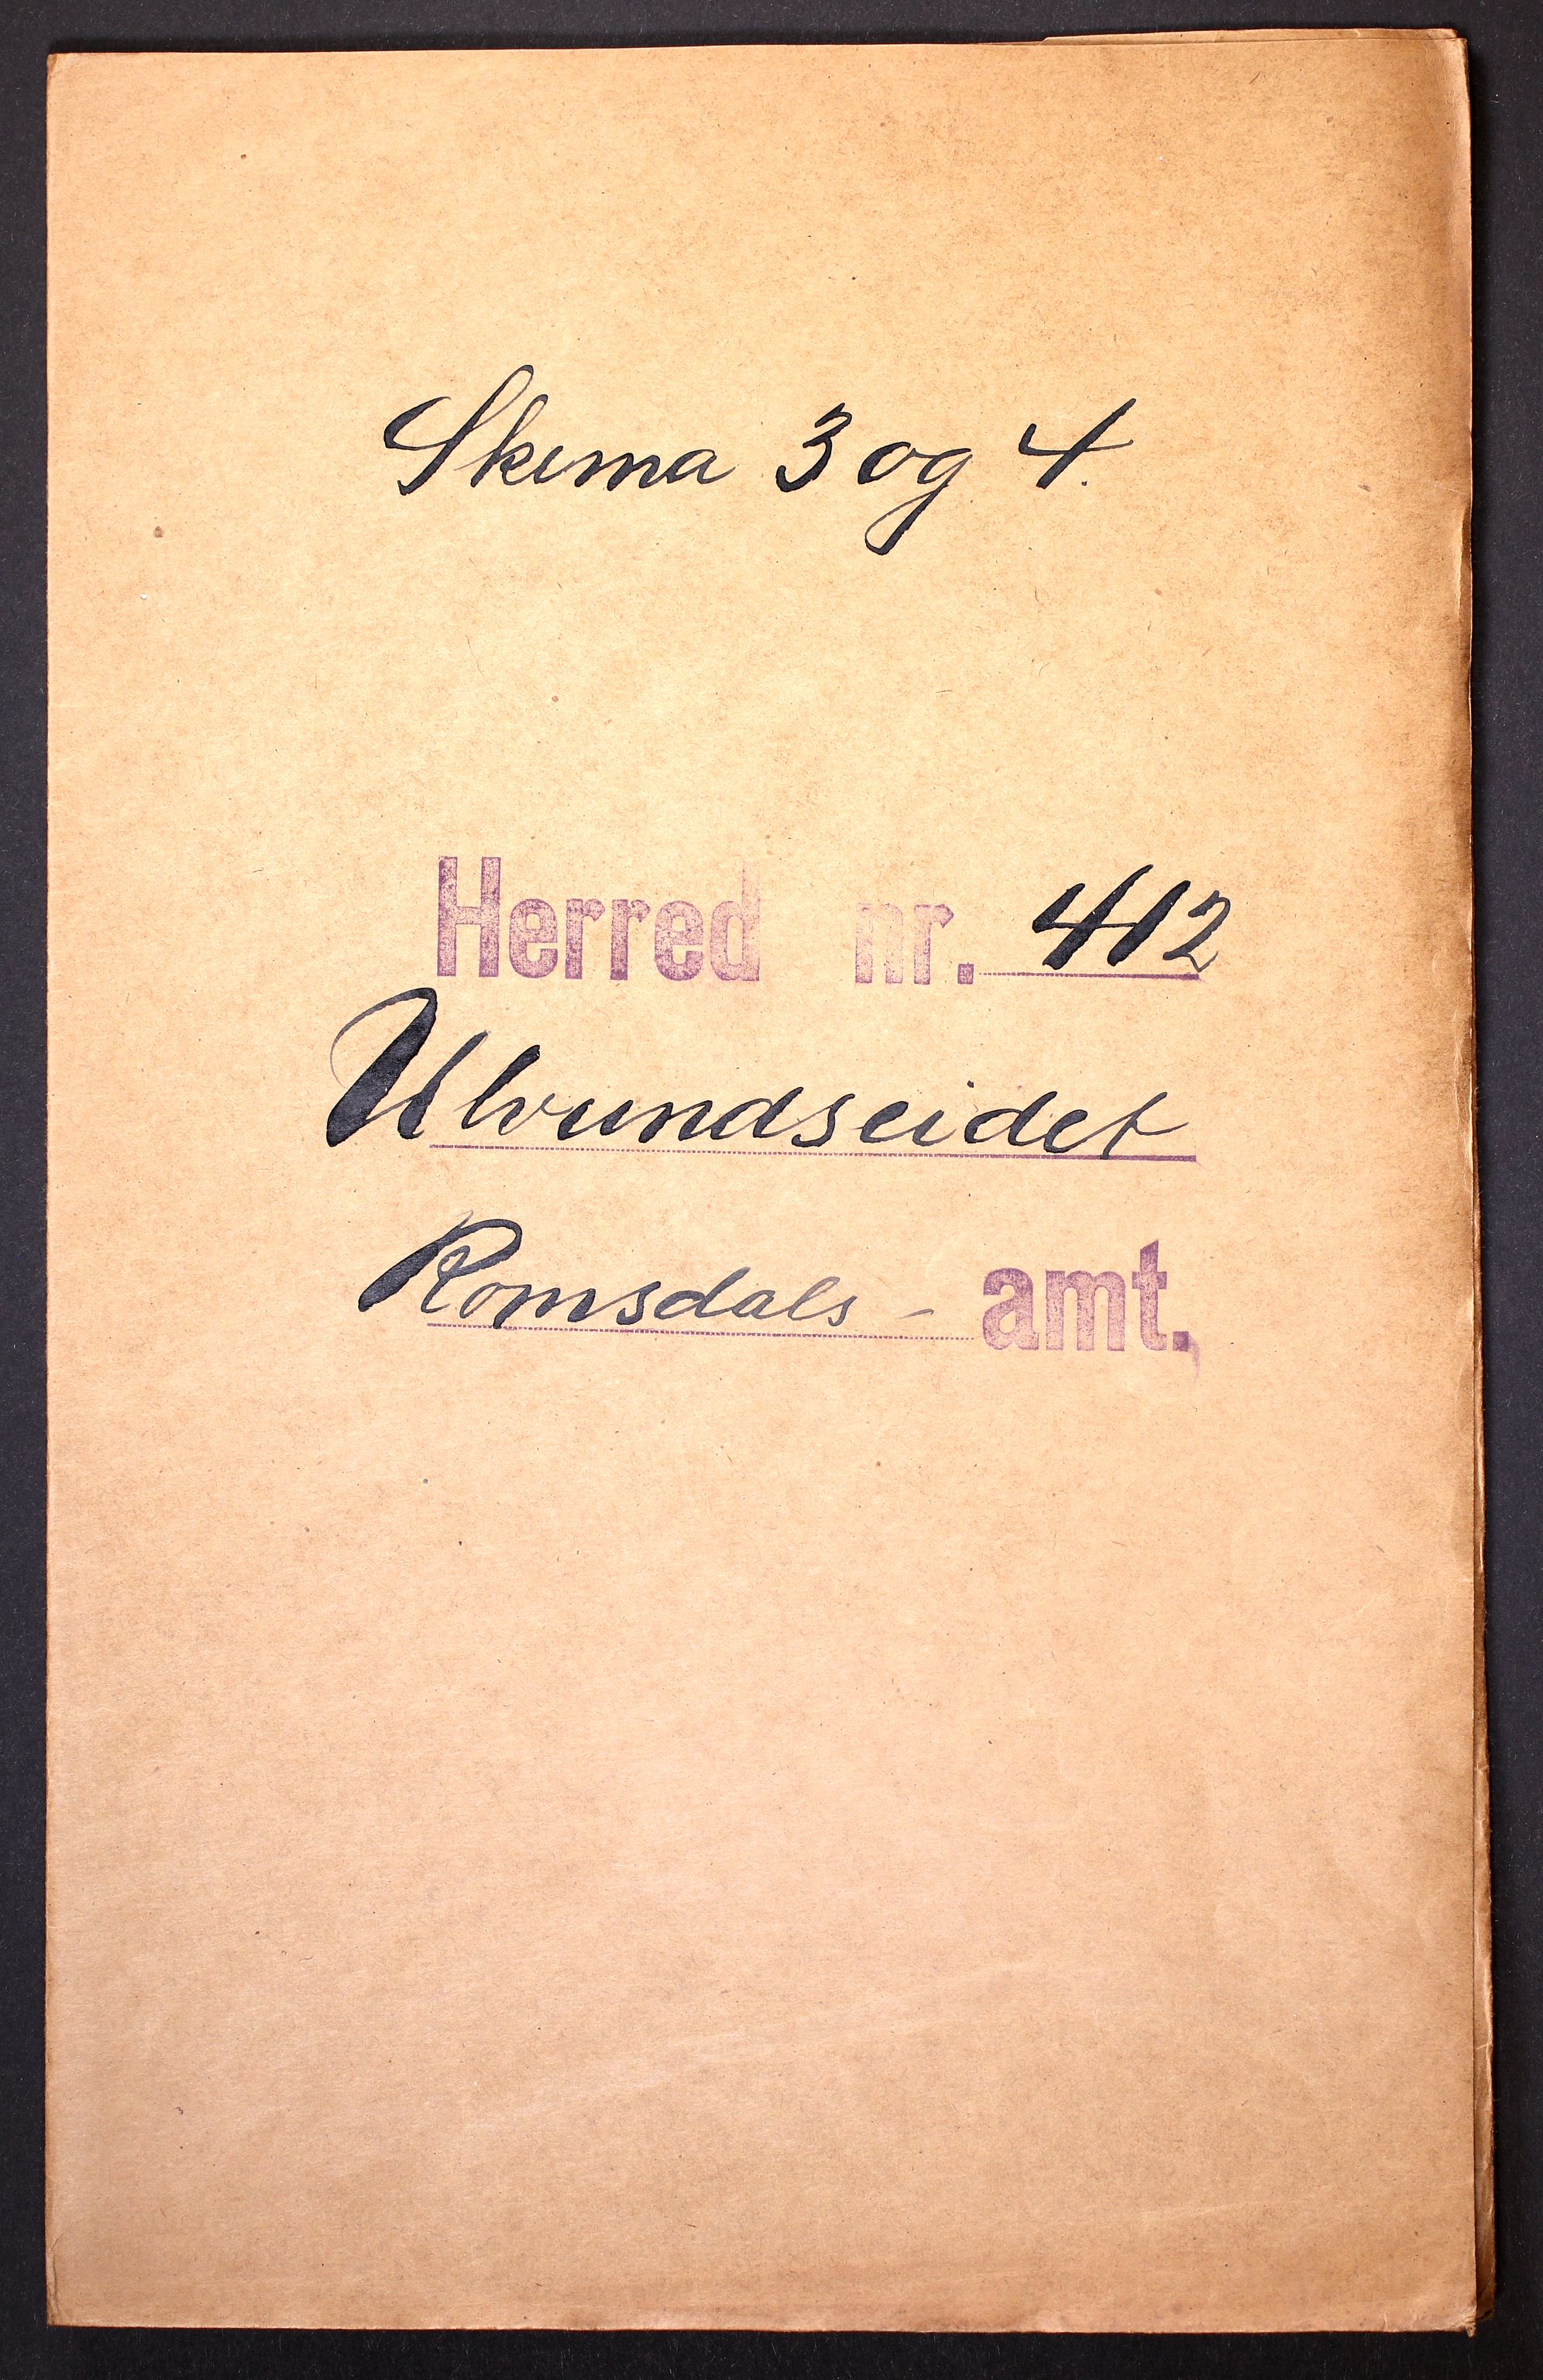 Skema 3 og 4.
Herred nr. 412
Ulvundseidet
Romsdals - amt.